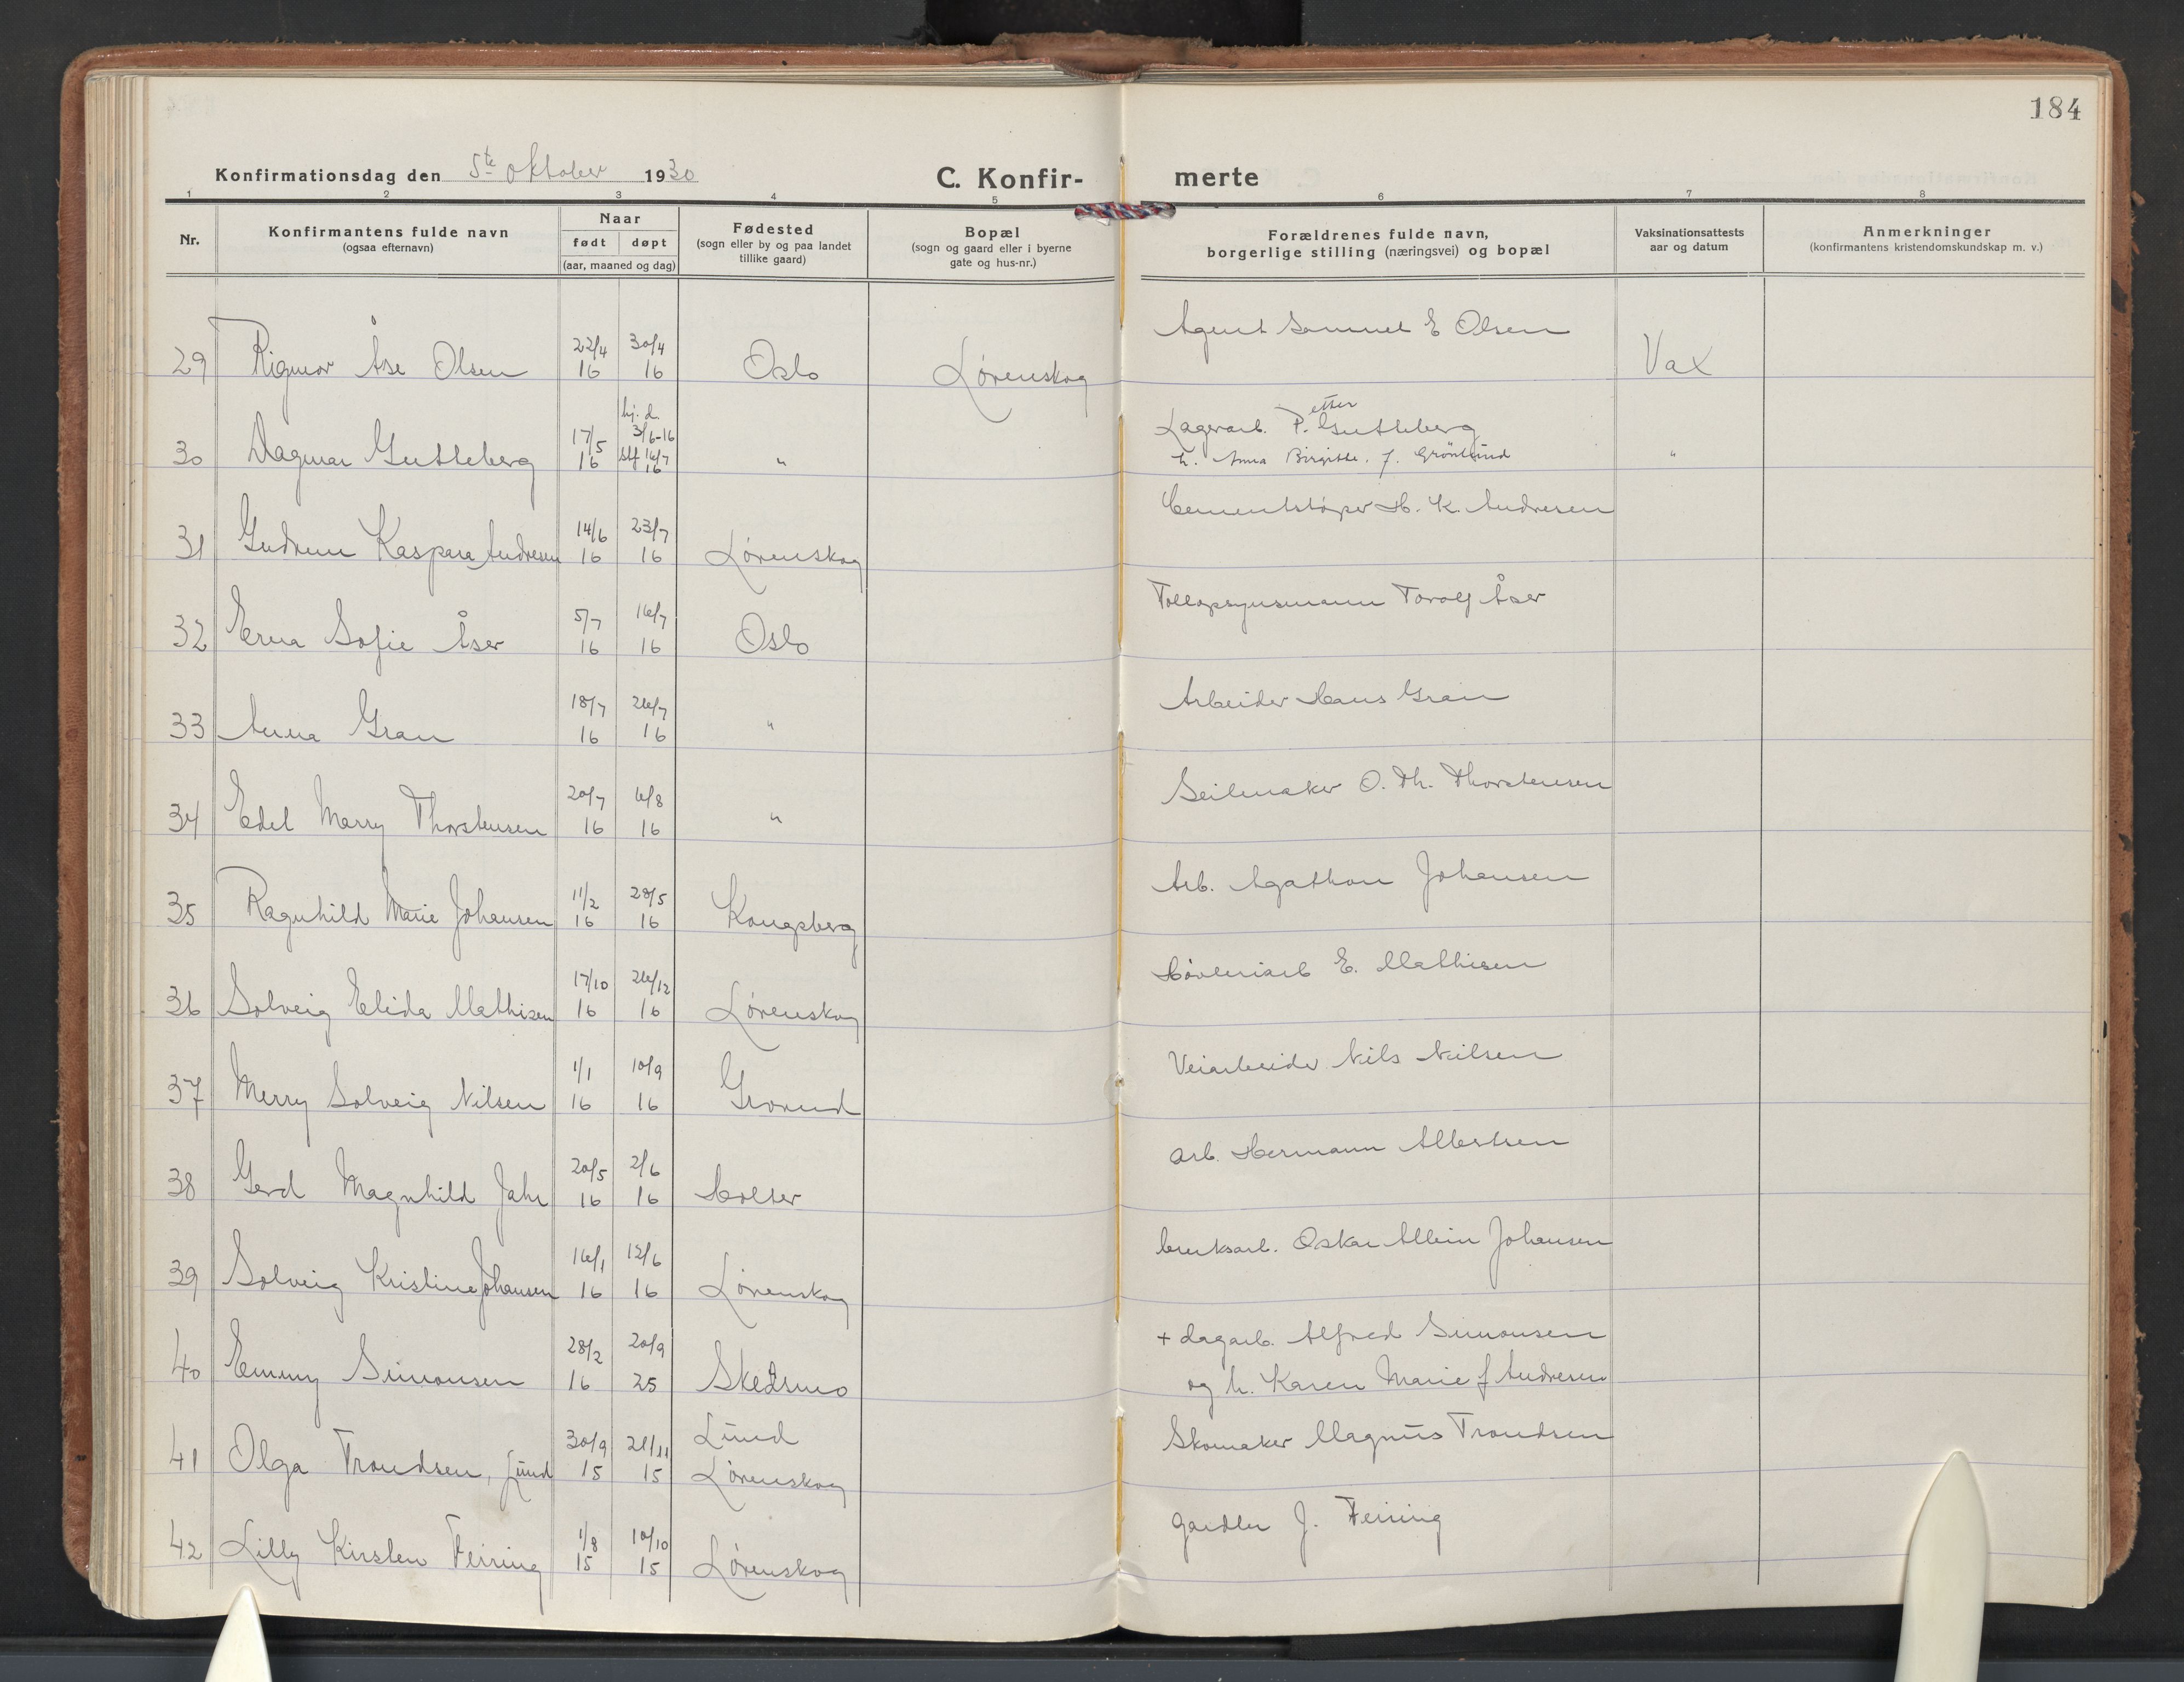 184
Konfirmationsdag den 5te oktober 1930
C. Konfir- merte
1 2 3 4 5 6 7 8
Nr.
Konfirmantens fulde navn
(ogsaa efternavn)
Naar
født døpt
(aar, maaned og dag)
Fødested
(sogn eller by og paa landet
tillike gaard)
Bopæl
(sogn og gaard eller i byerne
gate og hus-nr.)
Forældrenes fulde navn,
borgerlige stilling (næringsvei) og bopæl
Vaksinationsattests
aar og datum
Anmerkninger
(konfirmantens kristendomskundskap m. v.)
29 Rigmor Åse Olsen 22/4 16 30/4 16 Oslo Lørenskog Agent Samuel E Olsen Vax
30 Dagmar Gutteberg 17/5 16 hj. d. 3/6-16 stf 16/7 16 " Lagerarb. Petter Gutteberg
h. Anna Birgitte f. Grönlund "
31 Gudrun Kaspara Andresen 14/6 16 23/7 16 Lørenskog Cementstøper H. K. Andresen
32 Erna Sofie Åser 5/7 16 16/7 16 Oslo Tollopsynsmann Toralf Åser
33 Anna Gran 18/7 16 26/7 16 " Arbeider Hans Gran
34 Edel Merry Thorstensen 20/7 16 6/8 16 " Seilmaker O. Th. Thorstensen
35 Ragnhild Marie Johansen 11/2 16 28/5 16 Kongsberg Arb. Agathon Johansen
36 Solveig Elida Mathisen 17/10 16 26/12 16 Lørenskog Høvleriarb E. Mathisen
37 Merry Solveig Nilsen 1/1 16 10/9 16 Grorud Veiarbeider Nils Nilsen
38 Gerd Magnhild Jahr 20/5 16 2/6 16 Holter Arb. Hermann Albertsen
39 Solveig Kristine Johansen 16/1 16 12/6 16 Lørenskog bruksarb. Oskar Albin Johansen
40 Emmy Simonsen 28/2 16 20/9 25 Skedsmo + dagarb. Alfred Simonsen
og h. Karen Marie f Andresen
41 Olga Trondsen, Lund 30/9 15 21/11 15 Lund
Lørenskog Skomaker Magnus Trondsen
42 Lilly Kirsten Feiring 1/8 15 10/10 15 Lørenskog gardbr J. Feiring